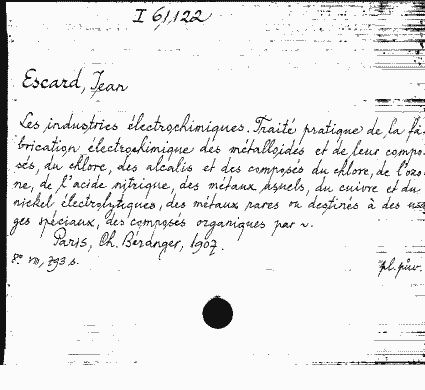 I 61,122
Escard, Jean
Les industries électrochimiques. Traité pratique de la fa-
brication électrochimique des métalloïdes et de leur compo-
sés, du chlore, des alcalis et des composés du chlore, de l'ozo-
ne, de l'acide nitrique, des métaux usuels, du cuivre et du
nickel électrolytiques, des métaux rares ou destinés à des usa-
ges spéciaux, des composés organiques par ~.
Paris, Ch. Béranger, 1907.
8° VIII, 793 s.
pl. pův.